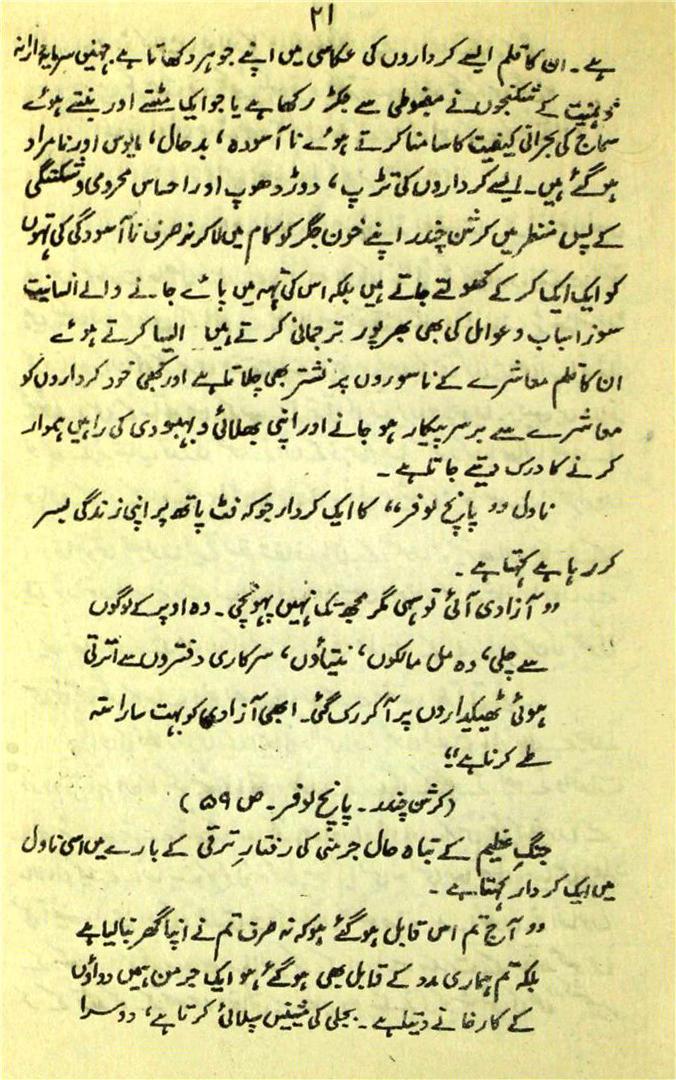 ۲۱
ہے۔ ان کا قلم ایسے کرداروں کی عکاسی میں اپنے جوہر دکھاتا ہے جنہیں سرمایہ دارانہ
ذہنیت کے شکنجوں نے مضبوطی سے جکڑ رکھا ہے یا جو ایک مٹتے اور بنتے ہوئے
سماج کی بحرانی کیفیت کا سامنا کرتے ہوئے ناآسودہ، بدحال، مایوس اور نامراد
ہوگئے ہیں۔ ایسے کرداروں کی تڑپ، دوڑ دھوپ اور احساس محرومی و شکستگی
کے پس منظر میں کرشن چندر اپنے خون جگر کو کام میں لاکر نہ صرف ناآسودگی کی تہوں
کو ایک ایک کرکے کھولتے جاتے ہیں بلکہ اس کی تہہ میں پائے جانے والے انسانیت
سوز اسباب و عوامل کی بھی بھرپور ترجمانی کرتے ہیں۔ ایسا کرتے ہوئے
ان کا قلم معاشرے کے ناسوروں پر نشتر بھی چلاتا ہے اور کبھی خود کرداروں کو
معاشرے سے برسرپیکار ہو جانے اور اپنی بھلائی و بہبودی کی راہیں ہموار
کرنے کا درس دیتے جاتا ہے۔
ناول ”پانچ لوفر“ کا ایک کردار جو کہ فٹ پاتھ پر اپنی زندگی بسر
کر رہا ہے کہتا ہے۔
”آزادی آئی تو سہی مگر مجھ تک نہیں پہونچی۔ وہ اوپر کے لوگوں
سے چلی، وہ مل مالکوں، نیتاؤں، سرکاری دفتروں سے اترتی
ہوئی ٹھیکیداروں پر آکر رک گئی۔ ابھی آزادی کو بہت سا راستہ
طے کرنا ہے“
(کرشن چندر۔ پانچ لوفر۔ ص ۵۹)
جنگ عظیم کے تباہ حال جرمنی کی رفتارِ ترقی کے بارے میں اسی ناول
میں ایک کردار کہتا ہے۔
”آج تم اس قابل ہوگئے ہو کہ نہ صرف تم نے اپنا گھر بنالیا ہے
بلکہ تم ہماری مدد کے قابل بھی ہوگئے ہو ایک جرمن ہمیں دواؤں
کے کارخانے دیتا ہے۔ بجلی کی مشینیں سپلائی کرتا ہے، دوسرا